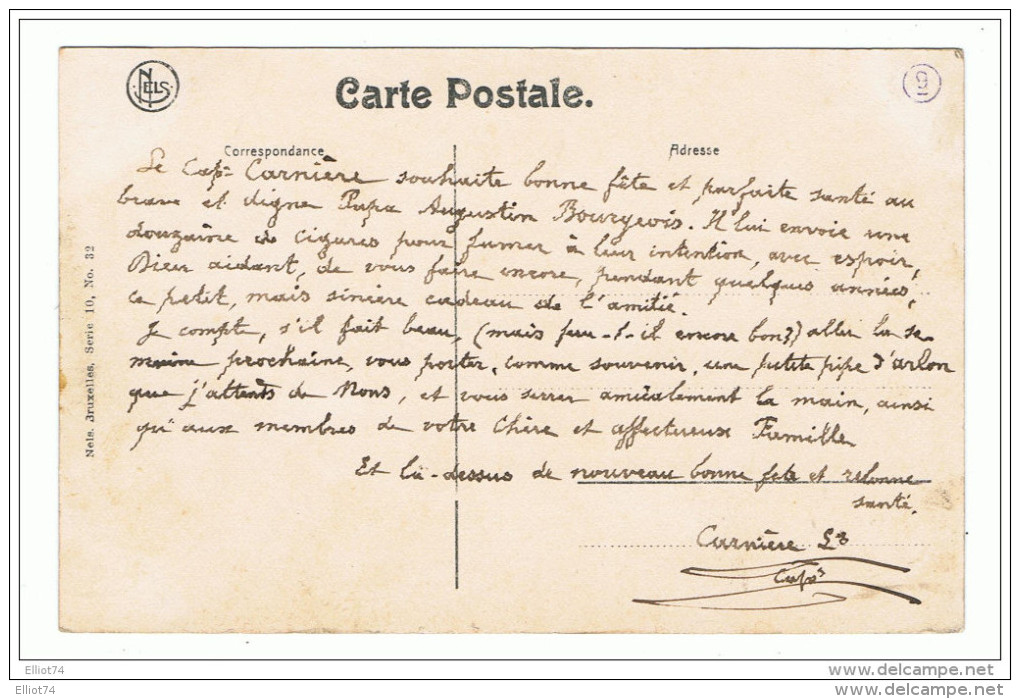 NELS
Carte Postale.
9
Correspondance
Adresse
Le Cap. Carnière souhaite bonne fête et parfaite santé au
brave et digne Papa Augustin Bourgeois. Il lui envoie une
douzaine de cigares pour fumer à leur intention, avec espoir,
Dieu aidant, de vous faire encore, pendant quelques années,
ce petit, mais sincère cadeau de l'amitié.
Je compte, s'il fait beau, (mais feu-t-il encore bon?) aller la se-
maine prochaine, vous porter, comme souvenir, une petite pipe d'arlon
que j'attends de Mons, et vous serrer amicalement la main, ainsi
qu'aux membres de votre Chère et affectueux Famille
Et là-dessus de nouveau bonne fete et rebonne
santé.
Carnière
Nels, Bruxelles, Serie 10, No. 32
Elliot74
Elliot74
www.delcampe.net
www.delcampe.net